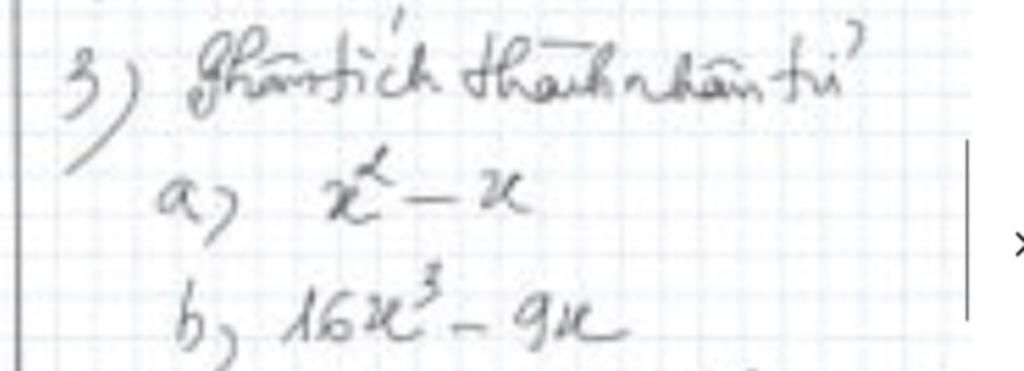 3) Phân tích thành nhân tử
a) x² - x
b) 16x³ - 9x